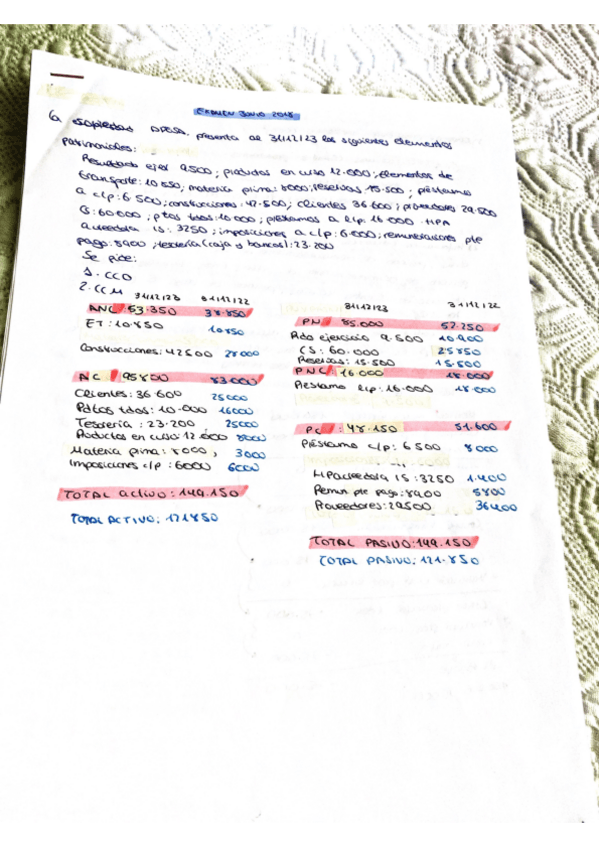 EXAMEN JUNIO 2018
La empresa DPESA, presenta al 31/12/23 los siguientes elementos
patrimoniales:
Resultado ejer 9.500; productos en curso 12.000; elementos de
transporte: 10.850; materia prima: 8000; reservas 15.500; préstamos
a c/p: 6.500; construcciones: 42.500; clientes 36.600; proveedores 29.500
CS: 60.000; ptos tdos: 10.000; préstamos a l/p: 16.000. HPA
acreedora IS: 3250; imposiciones a c/p: 6.000; remuneraciones pte
pago: 8900; tesorería (caja y bancos): 23.200
Se pide:
1. CCO
2. CCM
31/12/23 31/12/22
ANC 53.350 38.850
ET: 10.850 10850
Construcciones: 42500 28000
AC 95800 83.000
Clientes: 36.600 25000
Pdtos tdos: 10.000 16000
Tesorería: 23.200 25000
Productos en curso: 12.000 8000
Materia prima: 8000, 3000
Imposiciones c/p: 6000 6000
TOTAL activo: 149.150
TOTAL ACTIVO: 121850
31/12/23 31/12/22
PN 85.000 52.250
Rdo ejercicio 9.500 10.900
CS: 60.000 25850
Reservas: 15.500 15.500
PNC 16.000 18.000
Préstamo l/p: 16.000 18.000
PC: 48.150 51.600
Préstamo c/p: 6500 8000
HPacreedora IS: 3250 1.400
Remun pte pago: 8900 5800
Proveedores: 29500 36400
TOTAL PASIVO: 149.150
TOTAL PASIVO: 121.850